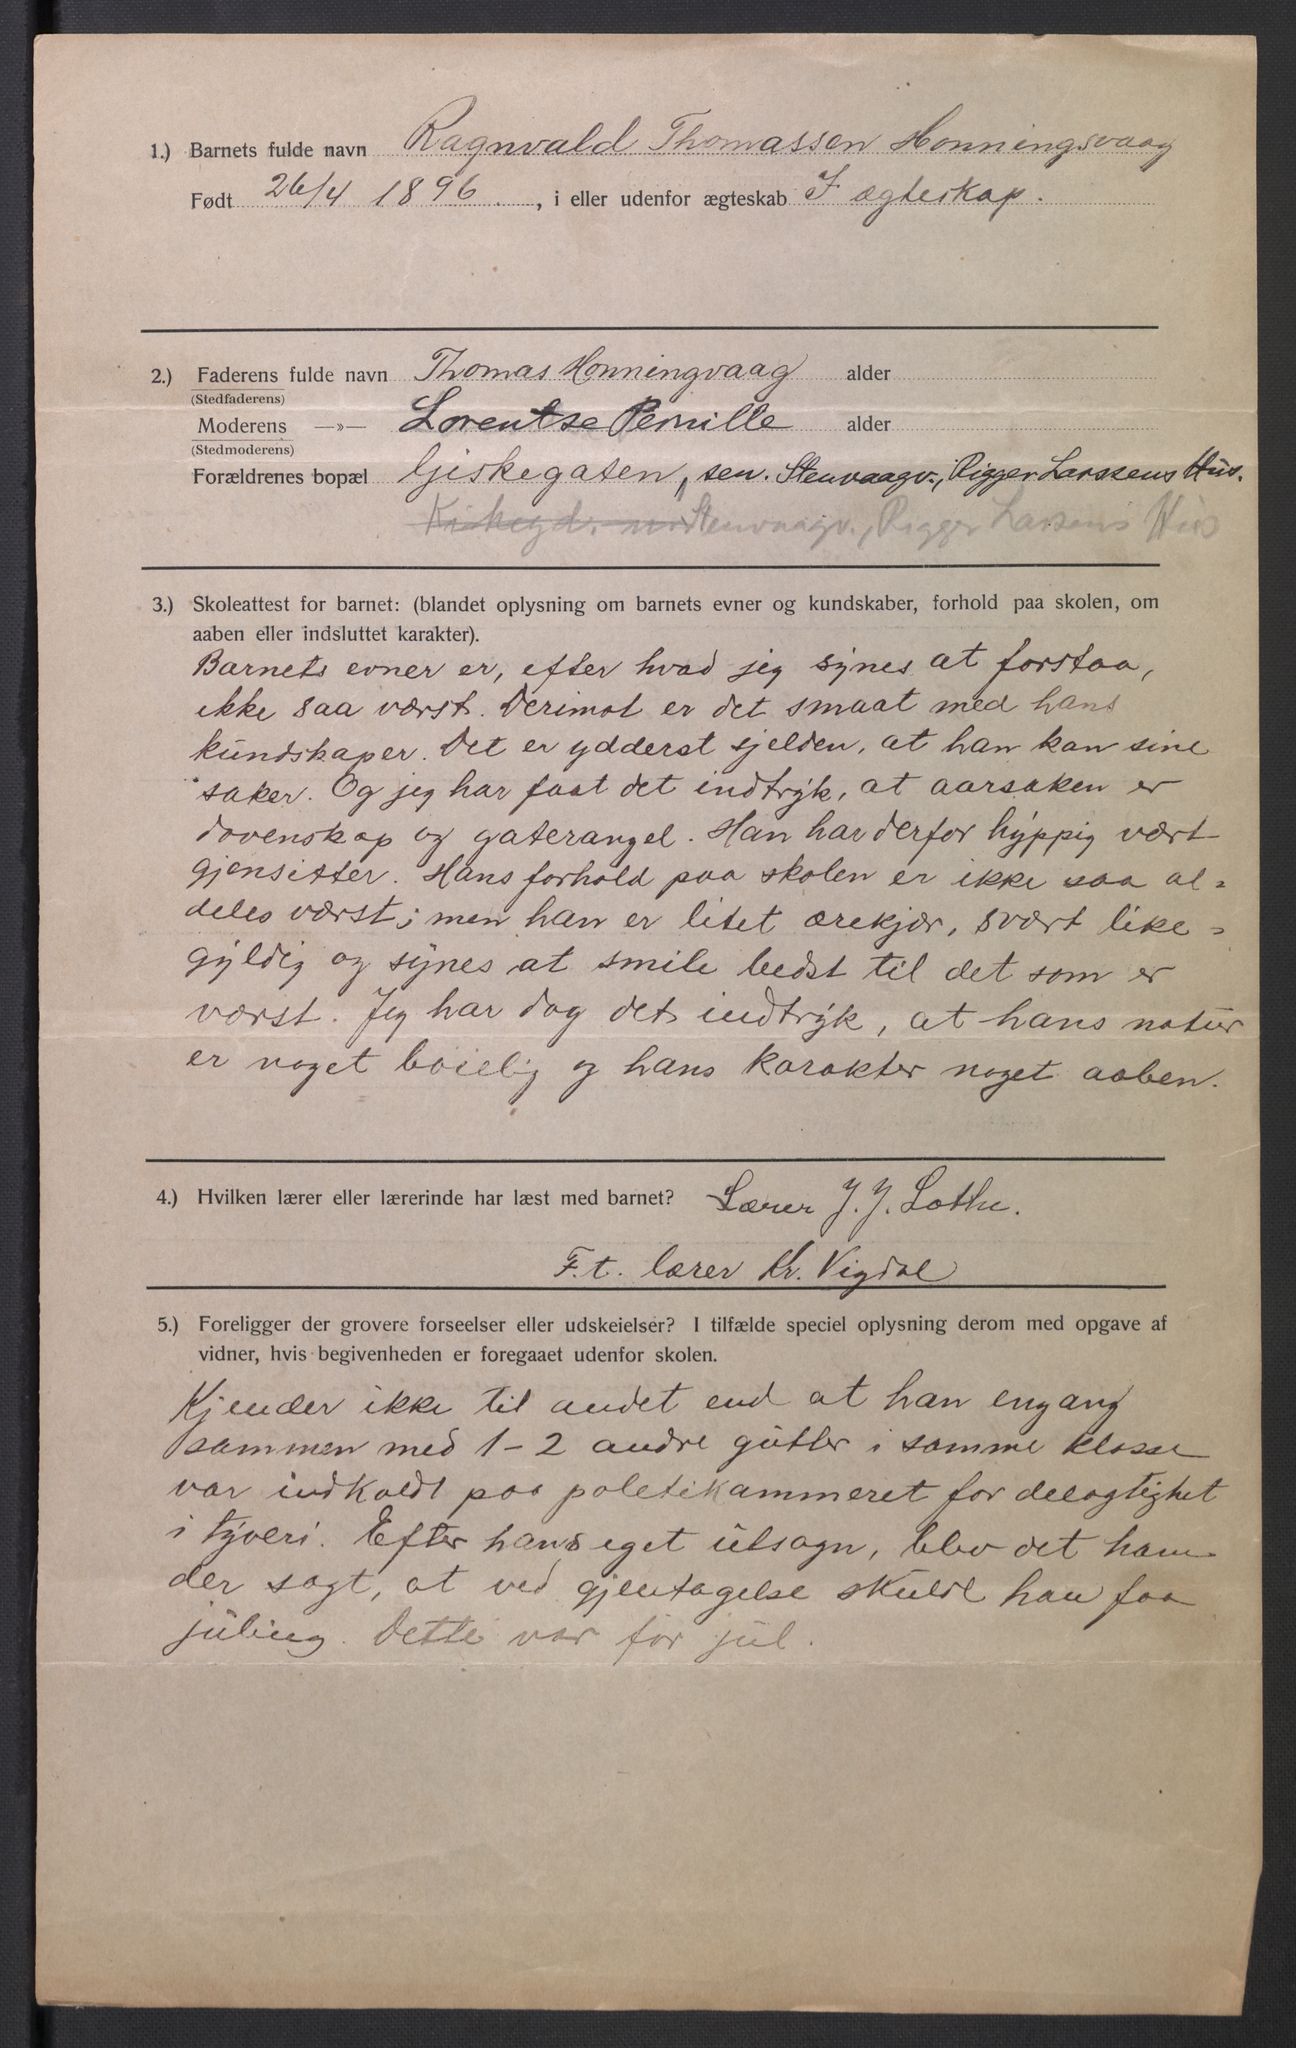 1.) Barnets fulde navn Ragnvald Thomassen Honningsvaag
Født 26/4 1896 , i eller udenfor ægteskab I ægteskap.
2.) Faderens fulde navn Thomas Honningvaag alder
(Stedfaderens)
Moderens —»— Lorentse Pernille alder
(Stedmoderens)
Forældrenes bopæl Giskegaten, sen. Stenvaagv., Rigger Larssens Hus.
Stenvaagv., Rigger Larsens Hus
3.) Skoleattest for barnet: (blandet oplysning om barnets evner og kundskaber, forhold paa skolen, om
aaben eller indsluttet karakter).
Barnets evner er, efter hvad jeg synes at forstaa,
ikke saa værst. Derimot er det smaat med hans
kundskaper. Det er ydderst sjelden, at han kan sine
saker. Og jeg har faat det indtryk, at aarsaken er
dovenskap og gaterangel. Han har derfor hyppig vært
gjensitter. Hans forhold paa skolen er ikke saa al-
deles værst; men han er litet ærekjær, svært like-
gyldig og synes at smile bedst til det som er
værst. Jeg har dog det indtryk, at hans natur
er noget bøielig og hans karakter noget aaben.
4.) Hvilken lærer eller lærerinde har læst med barnet? Lærer J. J. Lothe.
F.t. lærer Kr. Vigdal
5.) Foreligger der grovere forseelser eller udskeielser? I tilfælde speciel oplysning derom med opgave af
vidner, hvis begivenheden er foregaaet udenfor skolen.
Kjender ikke til andet end at han engang
sammen med 1-2 andre gutter i samme klasse
var indkaldt paa politikammeret for delagtighet
i tyveri. Efter hans eget utsagn, blev det ham
der sagt, at ved gjentagelse skulde han faa
juling. Dette var før jul.